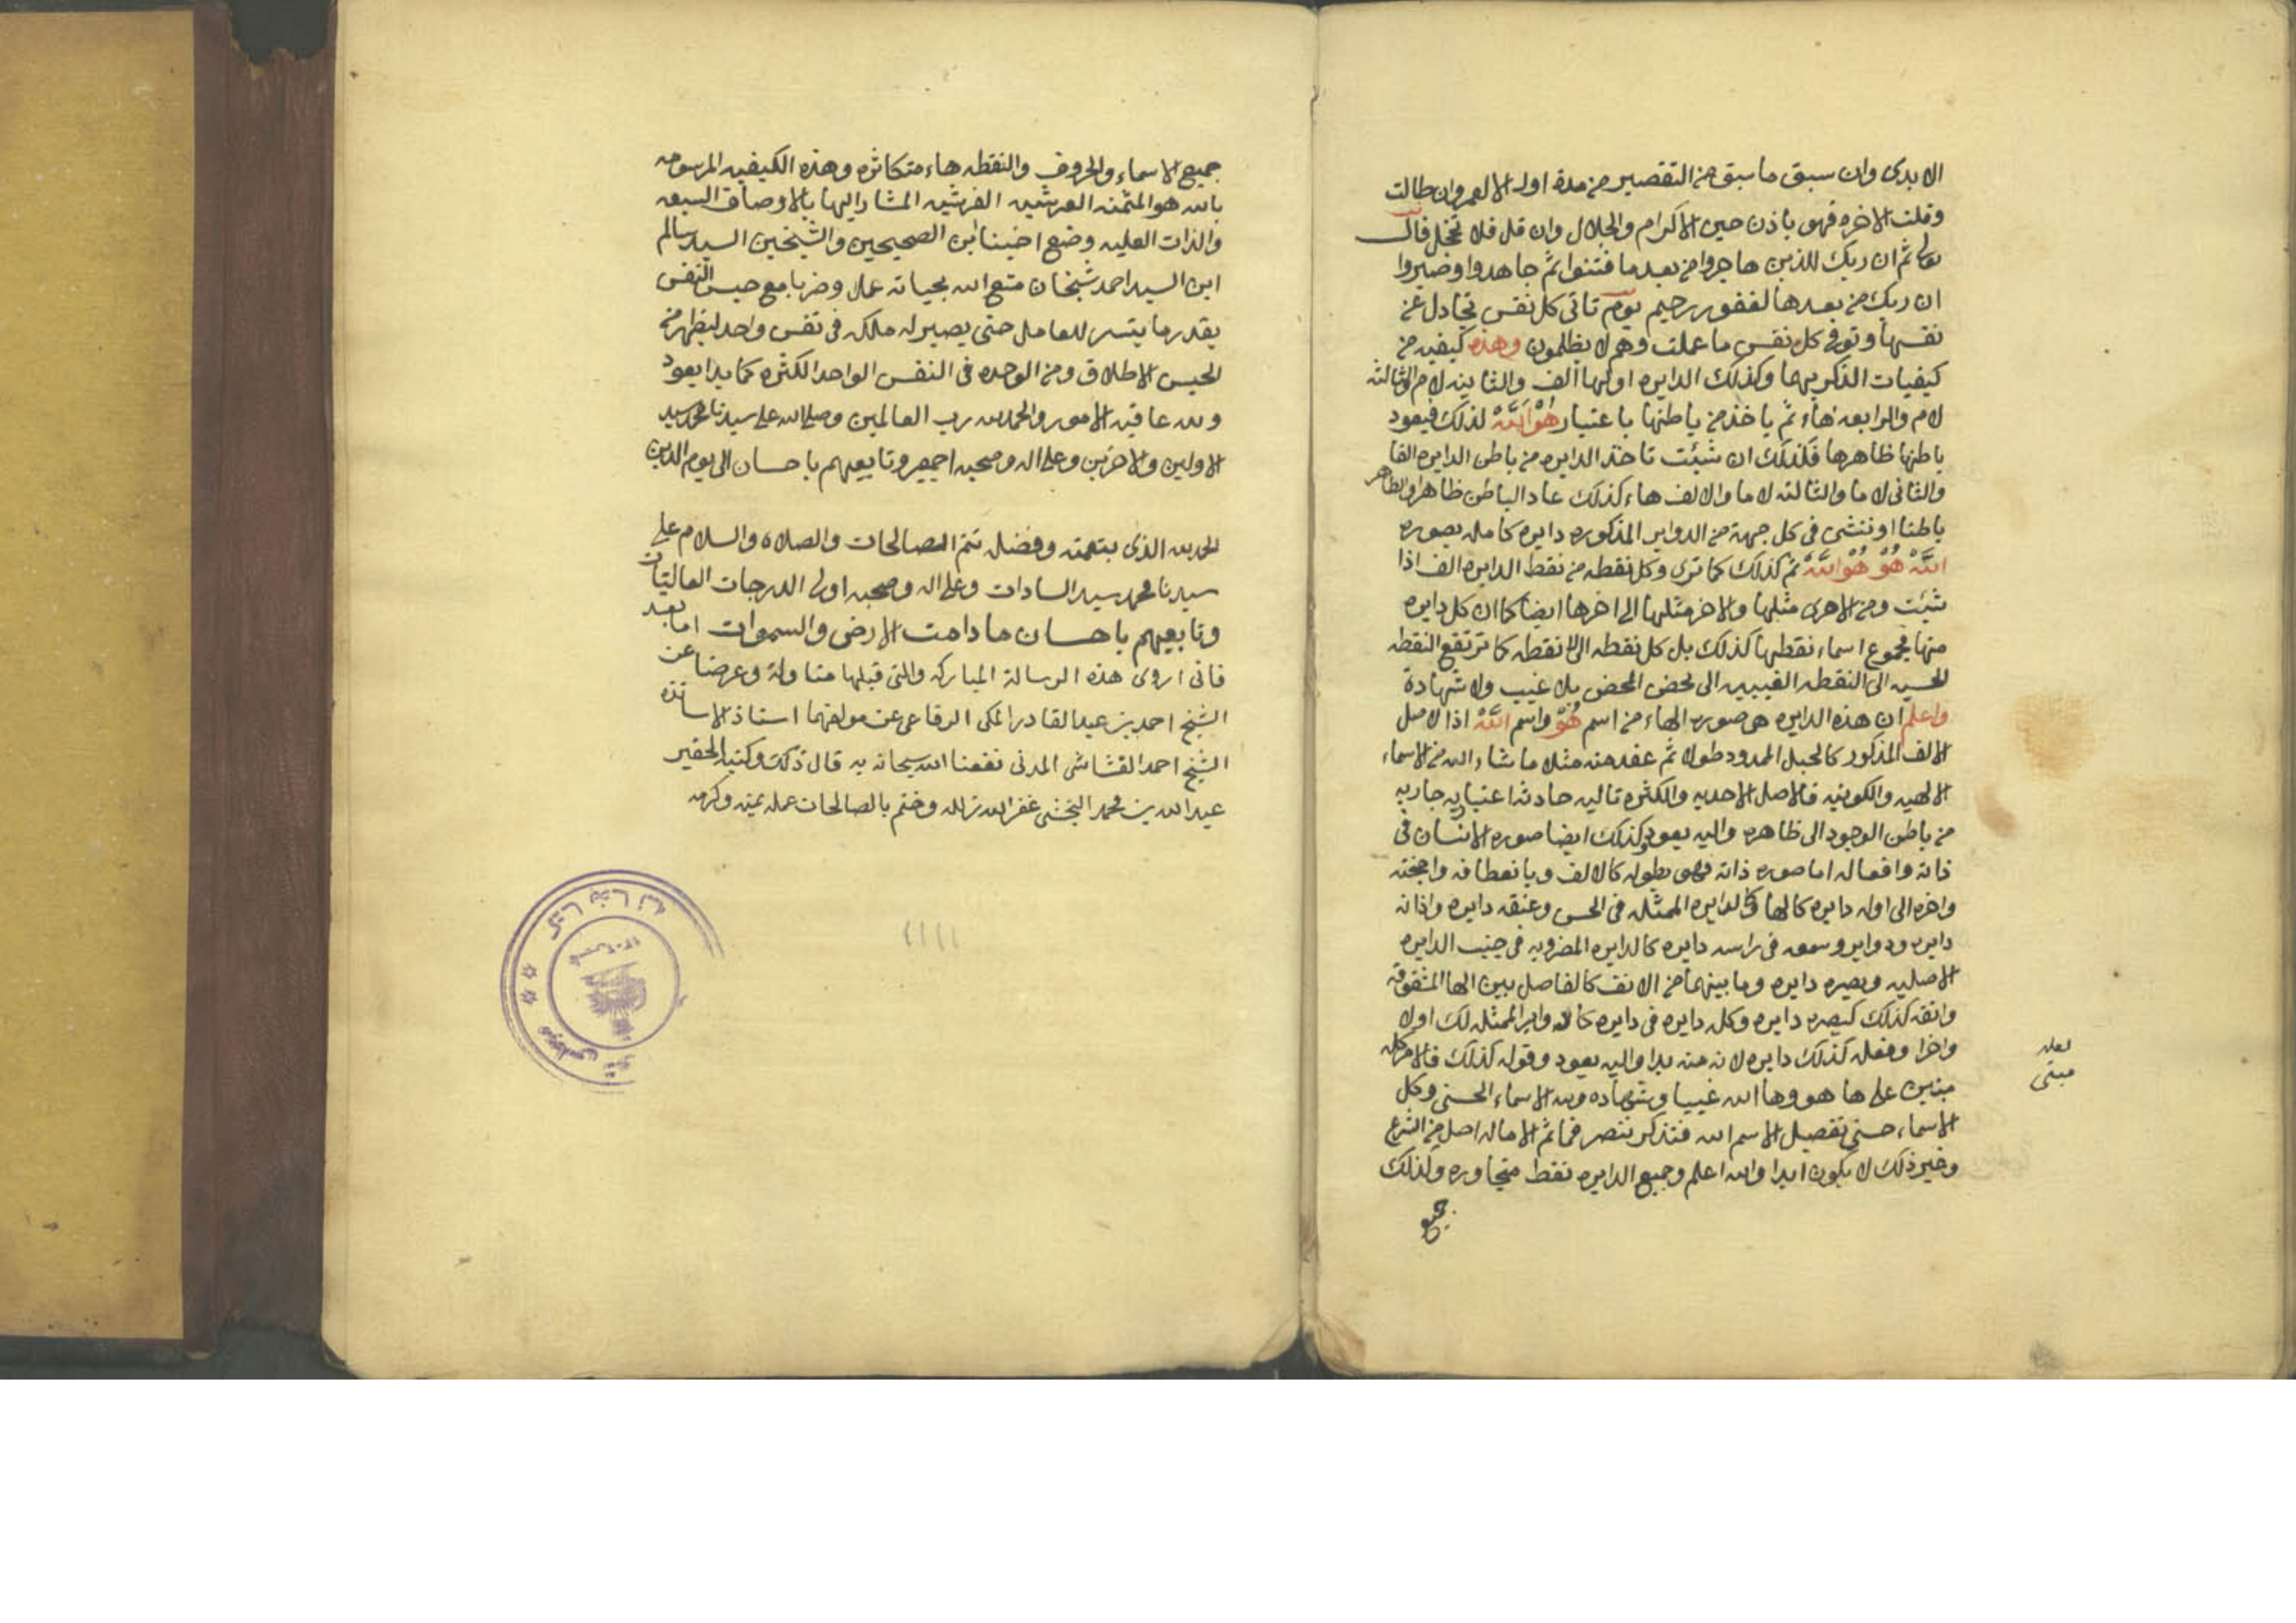 الابدى وان سبق ما سبق من التقصير من مدة اول الالعمر وان طالت
وقلت الاخره فهو باذن حين الاكرام والجلال وان قل فلا تخجل قال
تعالى ثم ان ربك للذين هاجروا من بعد ما فتنوا ثم جاهدوا وصبروا
ان ربك من بعدها لغفور رحيم يوم تاتى كل نفس تجادل عن
نفسها وتوفى كل نفس ما عملت وهم لا يظلمون وهذه كيفيه من
كيفيات الذكر بهما وكذلك الدايره اولها الف والثانيه لام والثالثه
لام والرابعه هاء ثم ياخذ من باطنها باعتبار هو الله لذلك فيعود
باطنها ظاهرها فكذلك ان شئت تاخذ الدايره من باطن الدايره الفا
والثانى لاما والثالثه لاما والالف هاء كذلك عاد الباطن ظاهرا والظاهر
باطنا او ننشى فى كل جهة من الدواير المذكوره دايره كامله بصوره
الله هو هو الله ثم كذلك كما ترى وكل نقطه من نقط الدايره الف اذا
شئت ومن الاخرى مثلها والاخر مثلها الى اخرها ايضا كما ان كل دايره
منها مجموع اسماء نقطها كذلك بل كل نقطه الى لا نقطه كما ترتفع النقطه
الحسيه الى النقطه الغيبيه الى محض المحض بلا غيب ولا شهادة
واعلم ان هذه الدايره هى صوره الهاء من اسم هو واسم الله اذ الاصل
الالف المذكور كالحبل الممدود طولا ثم عقد منه مثلا ما شاء الله من الاسماء
الالهيه والكونيه فالاصل الاحديه والكثره تاليه حادثه اعتباريه جاريه
من باطن الوجود الى ظاهره واليه يعود وكذلك ايضا صوره الانسان فى
ذاته وافعاله اما صوره ذاته فهو بطوله كالالف وبانعطافه واجخته
واخره الى اوله دايره كالها كالدايره الممثله فى الحس وعنقه دايره واذانه
دايره ودواير وسمعه فى راسه دايره كالدايره المضروبه فى جنب الدايره
الاصليه وبصره دايره وما بينهما من الانف كالفاصل بين الها المشقوقه
وانفه كذلك كبصره دايره وكل دايره فى دايره كالدواير الممثله لك اولا
واخرا وفعله كذلك دايره لانه منه بدا واليه يعود وقوله كذلك فالامر كله
مبنين على ها هو وها الله غيبا وشهاده ولله الاسماء الحسنى وكل
الاسماء حسنى تفصيل الاسم الله فتذكر تنصر فما ثم الا ماله اصل من الشرع
وغير ذلك لا يكون ابدا والله اعلم وجميع الدايره نقط متجاوره ولذلك
جميع
لعله
مبنى
جميع الاسماء والحروف والنقطه هاء متكاثره وهذه الكيفيه المرسومه
بالله هو المثمنه العرشيه الفرشيه المشار اليها بالاوصاف السبعه
والذات العليه وضع اخينا ابن الصحيحين والشيخين السيد سالم
ابن السيد احمد شيخان متع الله بحياته عملا وضربا مع حبس النفس
بقدر ما يتسر للعامل حتى يصير له ملكه فى نفس واحد ليظهر من
الحبس الاطلاق ومن الوحده فى النفس الواحد الكثره كما بدا يعود
ولله عاقبه الامور والحمد لله رب العالمين وصلى الله على سيدنا محمد سيد
الاولين والاخرين وعلى اله وصحبه اجمعين وتابعيهم باحسان الى يوم الدين
الحمد لله الذى بنعمته وفضله تتم الصالحات والصلاه والسلام على
سيدنا محمد سيد السادات وعلى اله وصحبه اولى الدرجات العاليات
وتابعيهم باحسان ما دامت الارض والسموات اما بعد
فانى اروى هذه الرسالة المباركه والتى قبلها مناولة وعرضا عن
الشيخ احمد بن عبد القادر المكى الرفاعى عن مولفهما استاذ الاساتذه
الشيخ احمد القشاشى المدنى نفعنا الله سبحانه به قال ذلك وكتبه الحقير
عبد الله بن محمد البخشى غفر الله زلله وختم بالصالحات عمله بمنه وكرمه